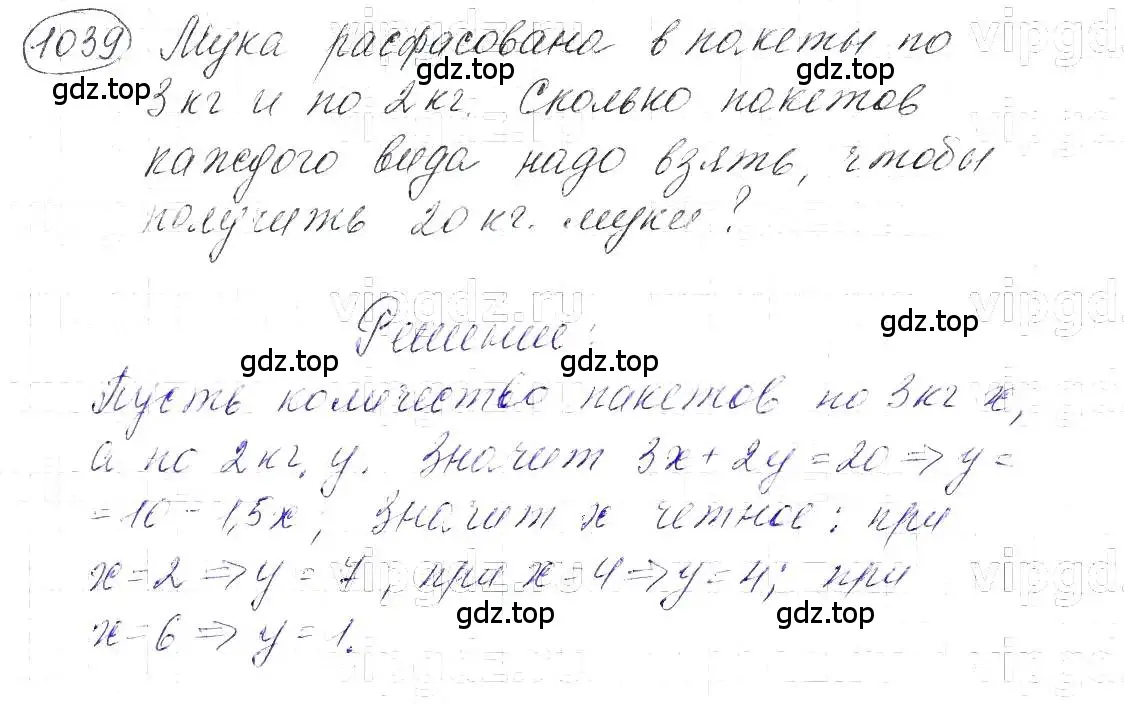 1039 Мука расфасована в пакеты по
3 кг и по 2 кг. Сколько пакетов
каждого вида надо взять, чтобы
получить 20 кг. муки?
Решение:
Пусть количество пакетов по 3 кг x,
а по 2 кг. y. Значит 3x + 2y = 20 => y =
= 10 - 1,5x; Значит x четное: при
x = 2 => y = 7, при x = 4 => y = 4; при
x = 6 => y = 1.
gdz.top
gdz.top
gdz.top
gdz.top
gdz.top
gdz.top
gdz.top
gdz.top
vipgdz.ru
vipgd
vipgdz.ru
vipgd
vipgdz.ru
vipgd.